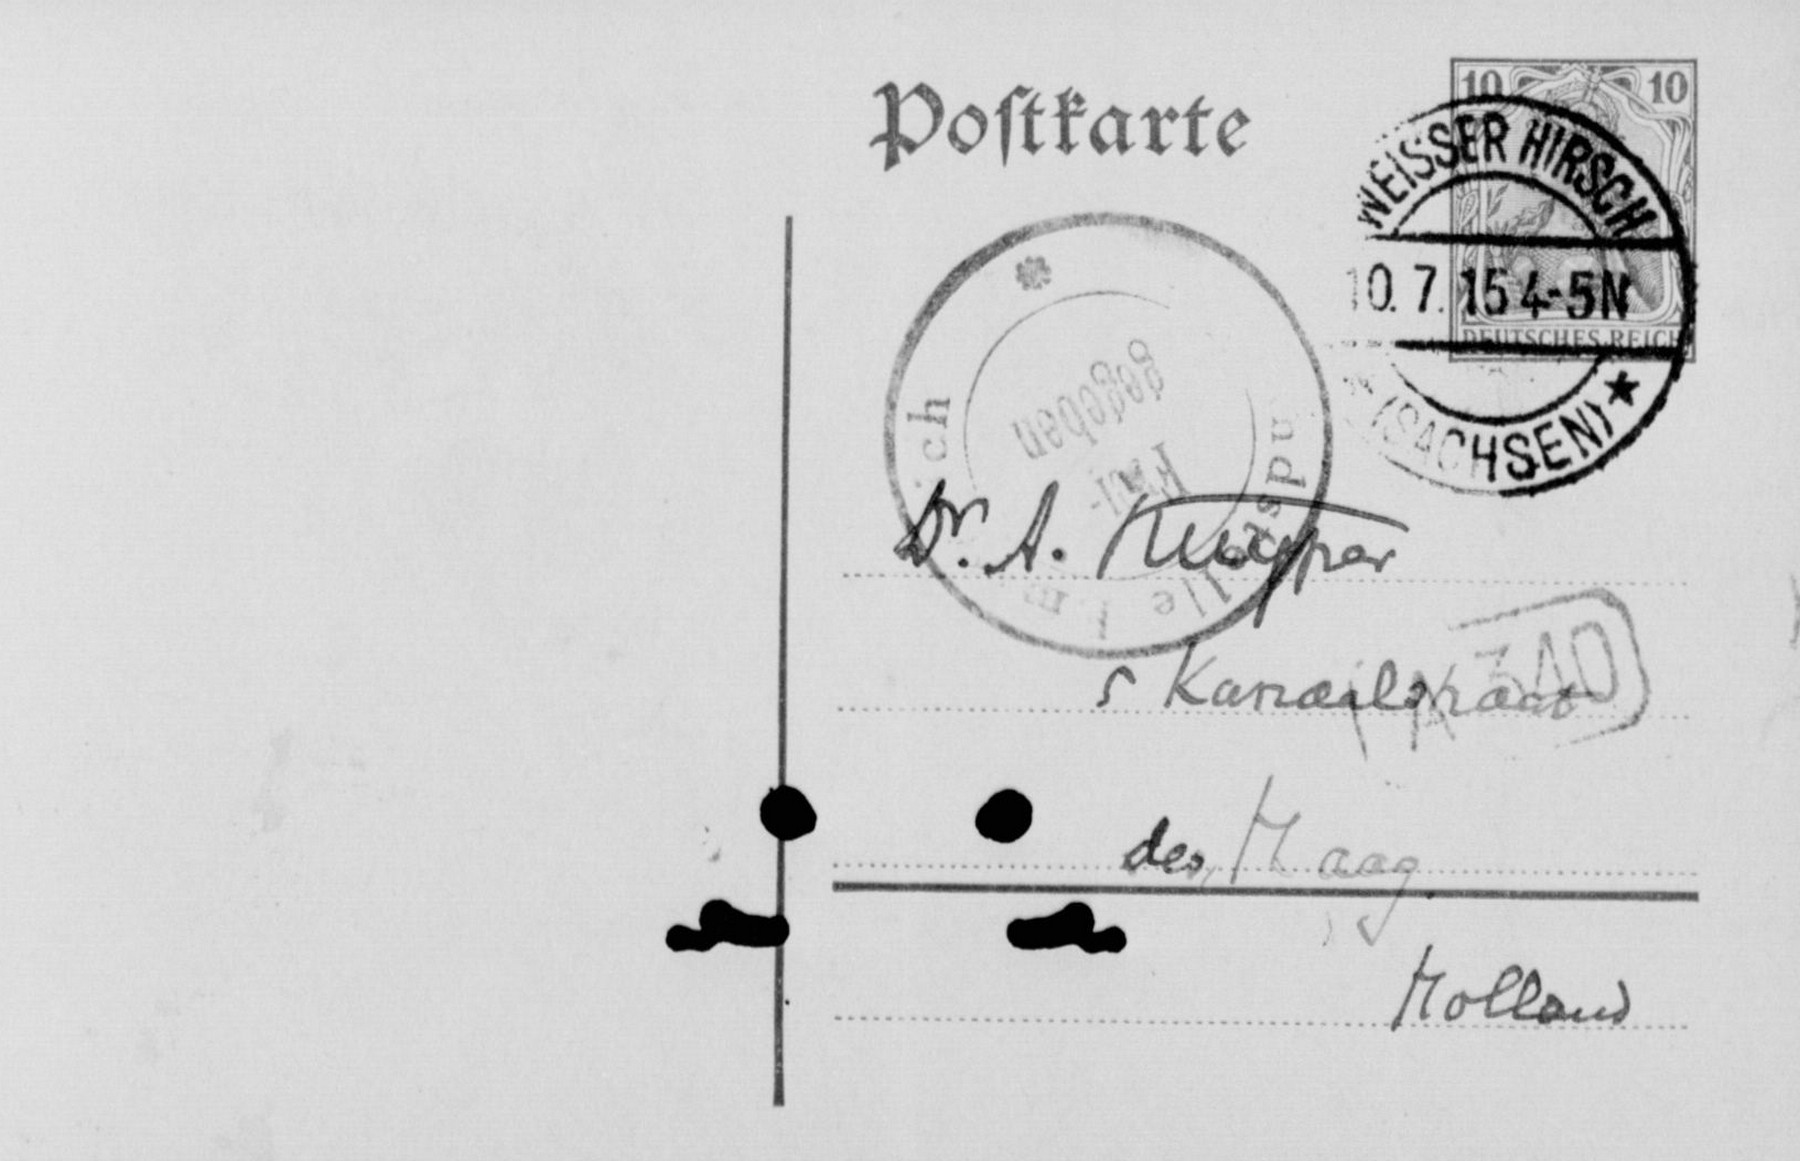 Postkarte
10 10
WEISSER HIRSCH
10. 7. 15 4-5N
DEUTSCHES REICH
(SACHSEN)
gegeben
Dr. A. Kuyper
5 Kanaalstraat
340
Haag
Holland